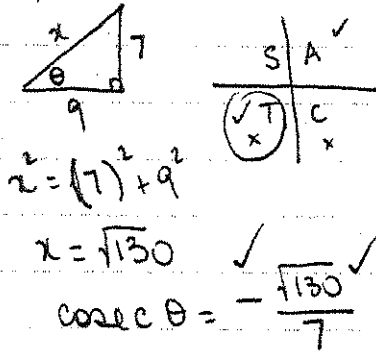 x 7
θ
9
S A ✓
✓ T C
x x
x² = (7)² + 9²
x = √130 ✓
cosec θ = - √130 / 7 ✓